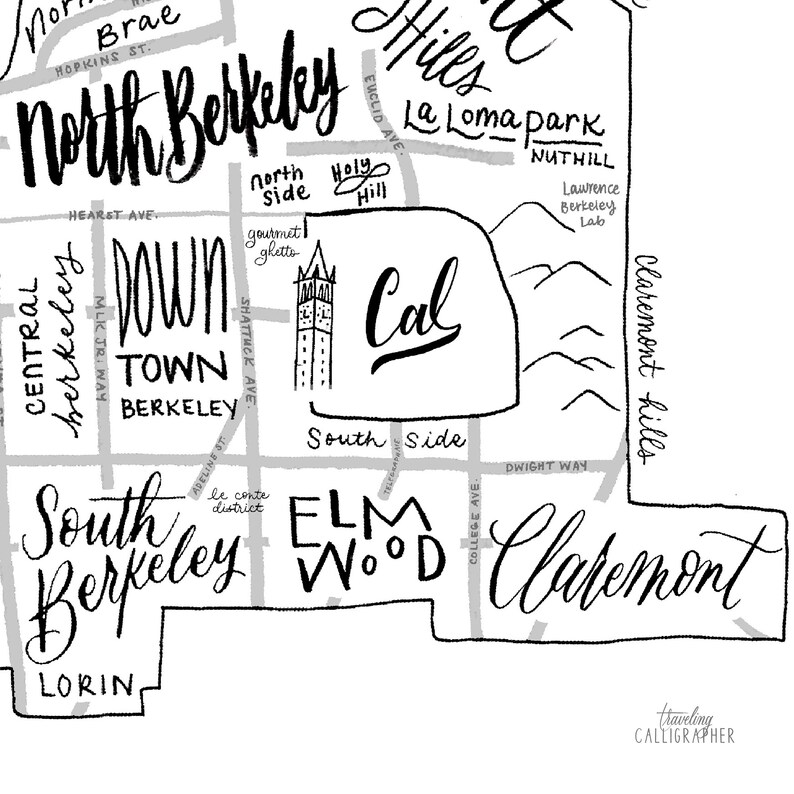 Brae
HOPKINS ST.
Hills
North Berkeley
EUCLID AVE.
La Loma park
NUTHILL
north
side
Holy
Hill
Lawrence
Berkeley
Lab
HEARST AVE.
gourmet
ghetto
CENTRAL
berkeley
MLK JR. WAY
DOWN
TOWN
BERKELEY
SHATTUCK AVE.
Cal
Claremont hills
South Side
ADELINE ST
TELEGRAPH AVE
DWIGHT WAY
COLLEGE AVE.
le conte
district
South
Berkeley
ELM
WOOD
Claremont
LORIN
traveling
CALLIGRAPHER